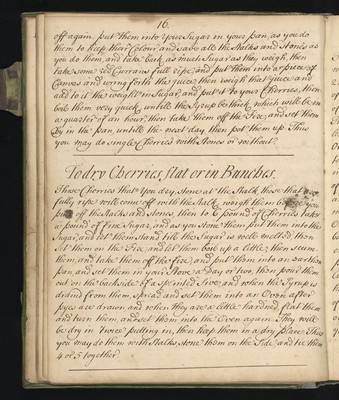 16.
off again, put them into your Sugar in your pan, as you do
them to keep their Colour, and save all the Stalks and Stones as
you do them, and take back as much Sugar as they weigh, then
take some red Currans full ripe, and put them into a piece of
Canvas and wring forth the juice, then weigh that juice and
add to it the weight in Sugar, and put it to your Cherries, then
boil them very quick, untill the Syrup be thick, which will be in
a quarter of an hour, then take them off the Fire, and set them
by in the pan, untill the next day, then pot them up. Thus
you may do single Cherries with Stones or without.
To dry Cherries, flat or in Bunches.
Those Cherries that you dry, stone at the Stalk, those that are
fully ripe will come off with the Stalk, weigh them before you
pull off the Stalks and stones, then to 6 pound of Cherries take
a pound of fine Sugar, and as you stone them put them into the
Sugar, and let them stand till the Sugar is well melted, then
set them on the Fire, and let them boil up a little, then scum
them, and take them off the fire, and put them into an earthen
pan, and set them in your Stove a day or two, then pour them
out on the backside of a splinted Sive, and when the Syrup is
draind from them spread and set them into an Oven after
pyes are drawn and when they are a little hardned, flat them
and turn them, and set them into the Oven again. They will
be dry in twice putting in, then keep them in a dry place. Thus
you may do them with Stalks stone them on the Side, and tie them
4 or 5 together.